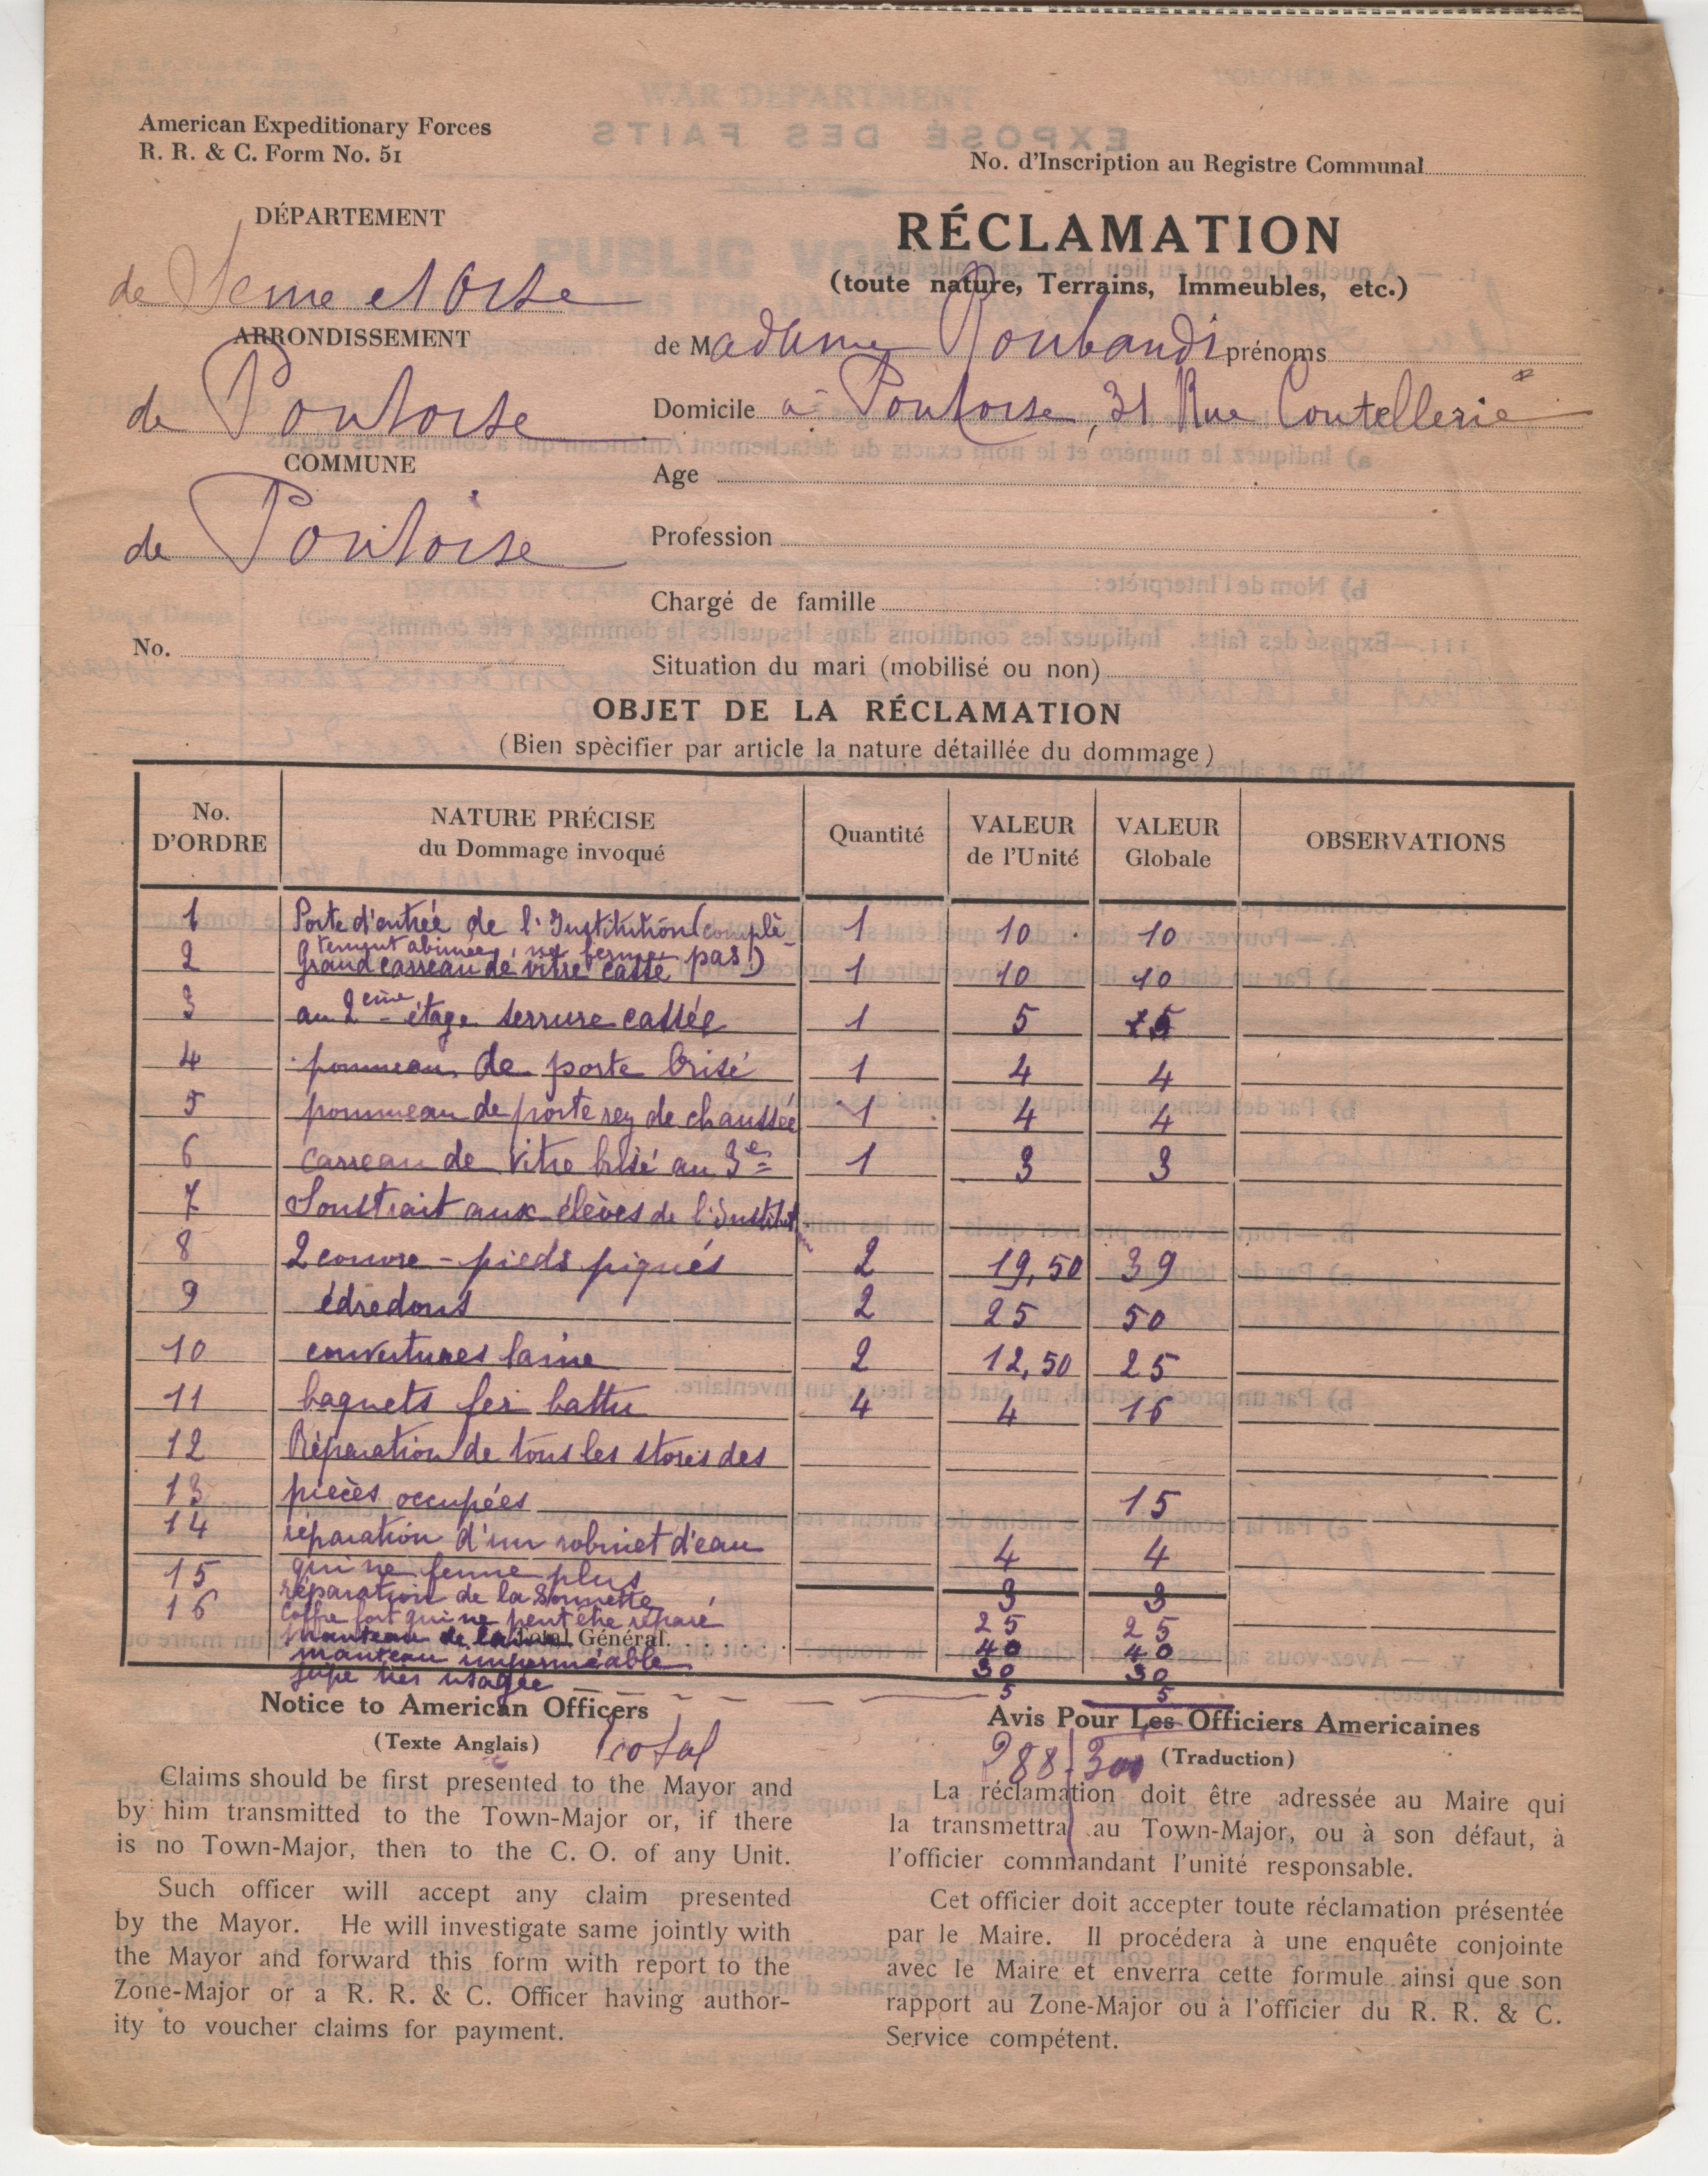 American Expeditionary Forces
R. R. & C. Form No. 51
No. d'Inscription au Registre Communal
DÉPARTEMENT
de Seine et Oise
ARRONDISSEMENT
de Pontoise
COMMUNE
de Pontoise
No.
RÉCLAMATION
(toute nature, Terrains, Immeubles, etc.)
de Madame Roubaudi prénoms
Domicile à Pontoise, 31 Rue Coutellerie
Age
Profession
Chargé de famille
Situation du mari (mobilisé ou non)
OBJET DE LA RÉCLAMATION
(Bien spècifier par article la nature détaillée du dommage)
No. D'ORDRE NATURE PRÉCISE du Dommage invoqué Quantité VALEUR de l'Unité VALEUR Globale OBSERVATIONS
1 Porte d'entrée de l'Institution (complè- 1 10 10
tement abimée, ne ferme pas)
2 Grand carreau de vitre cassé 1 10 10
3 au 2eme étage serrure cassée 1 5 5
4 pommeau de porte brisé 1 4 4
5 pommeau de porte rez de chaussée 1 4 4
6 carreau de vitre brisé au 3e 1 3 3
7 Soustrait aux élèves de l'institution
8 2 couvre-pieds piqués 2 19,50 39
9 édredons 2 25 50
10 couvertures laine 2 12,50 25
11 baquets fer battu 4 4 16
12 Réparation de tous les stores des
13 pièces occupées 15
14 réparation d'un robinet d'eau 4 4
qui ne ferme plus
15 réparation de la sonnette 3 3
16 Coffre fort qui ne peut être réparé 25 25
manteau de laine 40 40
Total Général
manteau imperméable 30 30
jupe très usagée 5 5
Total 288 300
Notice to American Officers
(Texte Anglais)
Claims should be first presented to the Mayor and
by him transmitted to the Town-Major or, if there
is no Town-Major, then to the C. O. of any Unit.
Such officer will accept any claim presented
by the Mayor. He will investigate same jointly with
the Mayor and forward this form with report to the
Zone-Major or a R. R. & C. Officer having author-
ity to voucher claims for payment.
Avis Pour Les Officiers Americaines
(Traduction)
La réclamation doit être adressée au Maire qui
la transmettra au Town-Major, ou à son défaut, à
l'officier commandant l'unité responsable.
Cet officier doit accepter toute réclamation présentée
par le Maire. Il procédera à une enquête conjointe
avec le Maire et enverra cette formule ainsi que son
rapport au Zone-Major ou à l'officier du R. R. & C.
Service compétent.